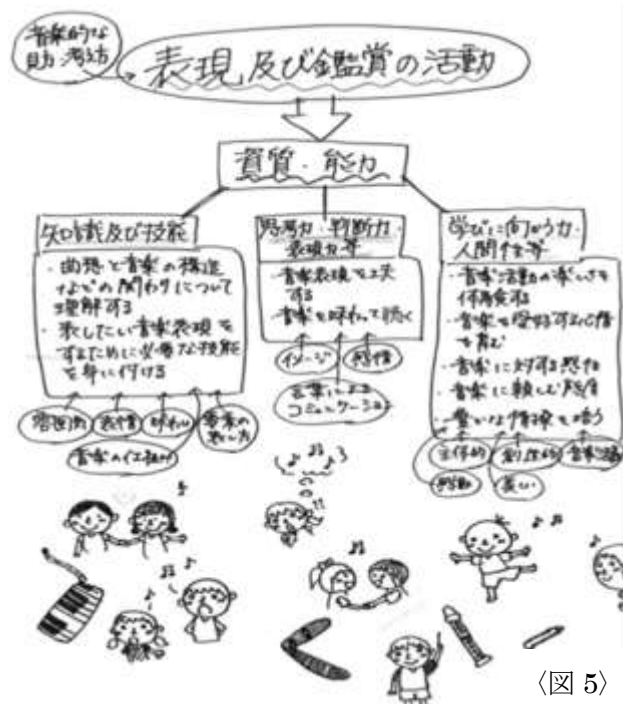 音楽的な
見方・考え方
表現及び鑑賞の活動
資質・能力
知識及び技能
・曲想と音楽の構造
などの関わりについて
理解する
・表したい音楽表現を
するために必要な技能
を身に付ける
雰囲気
表情
味わい
音楽の
表し方
音楽の仕組み
思考力・判断力・
表現力等
・音楽表現を工夫
する
・音楽を味わって聴く
イメージ
感情
言葉による
コミュニケーション
学びに向かう力・
人間性等
・音楽活動の楽しさを
体感する
・音楽を愛好する心情
を育む
・音楽に対する感性
・音楽に親しむ態度
・豊かな情操を培う
主体的
創造的
音楽活動
感動
美しい
〈図 5〉